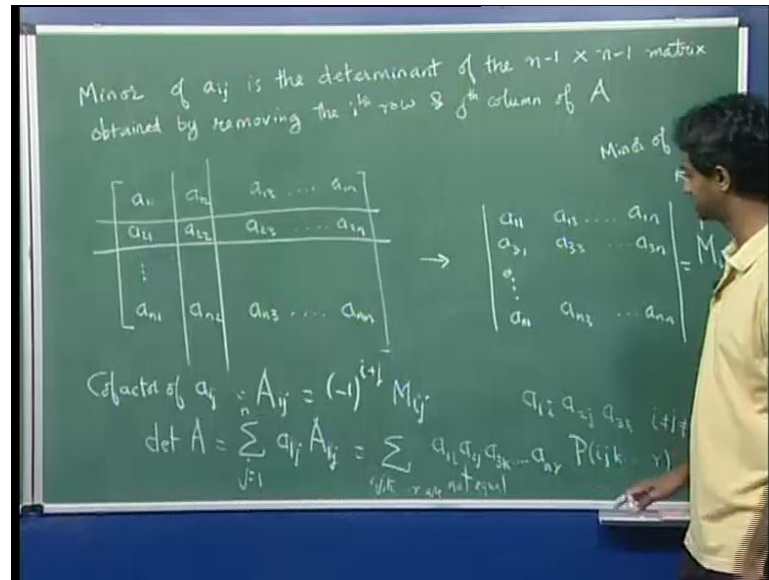 Minor of aij is the determinant of the n-1 × n-1 matrix
obtained by removing the ith row & jth column of A
Minor of
a11 a12 a13 .... a1n
a21 a22 a23 .... a2n
⋮
an1 an2 an3 .... ann
→
a11 a13 .... a1n
a31 a33 ... a3n
⋮
an1 an3 ... ann
= M
Cofactor of aij = Aij = (-1)^i+j Mij
a1i a2j a3k i≠j≠
det A = n∑j=1 a1j A1j = ∑ a1i a2j a3k ... anr P(ijk...r)
ijk...r are not equal